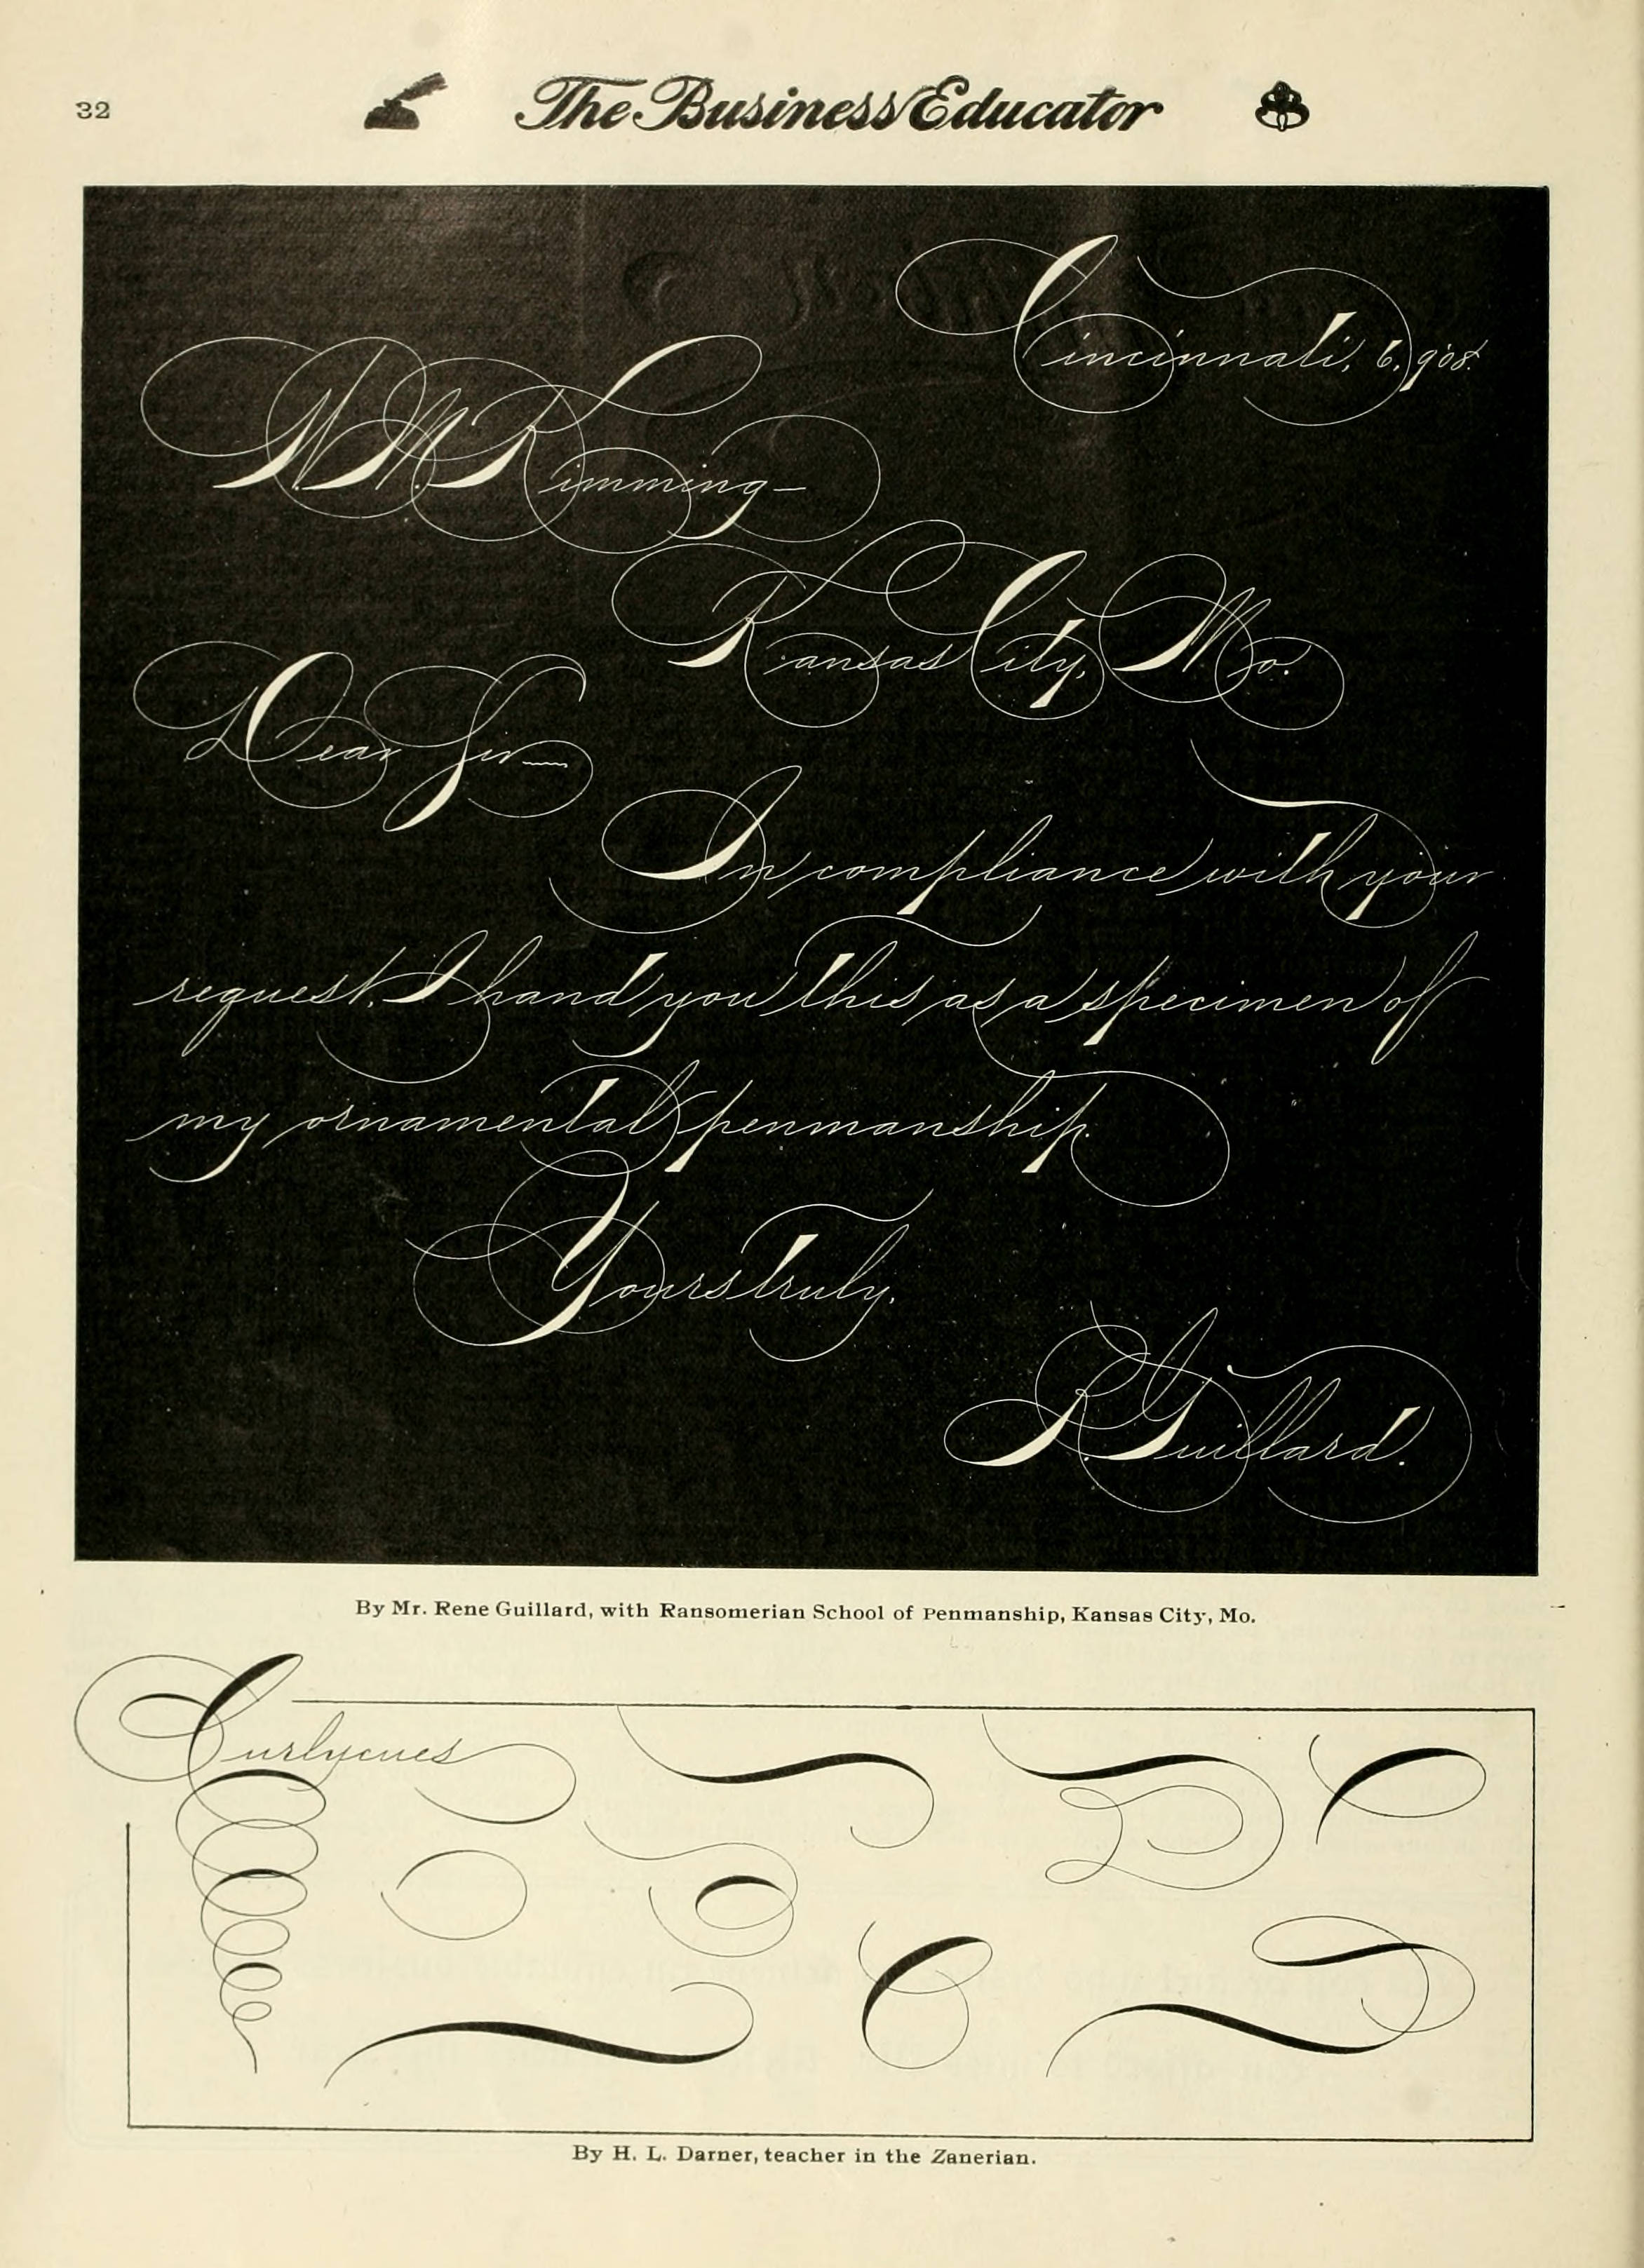 32
The Business Educator
Cincinnati, 6, 9'08.
Kimming—
Kansas City, Mo.
Dear Sir—
In compliance with your
request, I hand you this as a specimen of
my ornamental penmanship.
Yours truly,
R. Guillard.
By Mr. Rene Guillard, with Ransomerian School of Penmanship, Kansas City, Mo.
Curlycues
By H. L. Darner, teacher in the Zanerian.